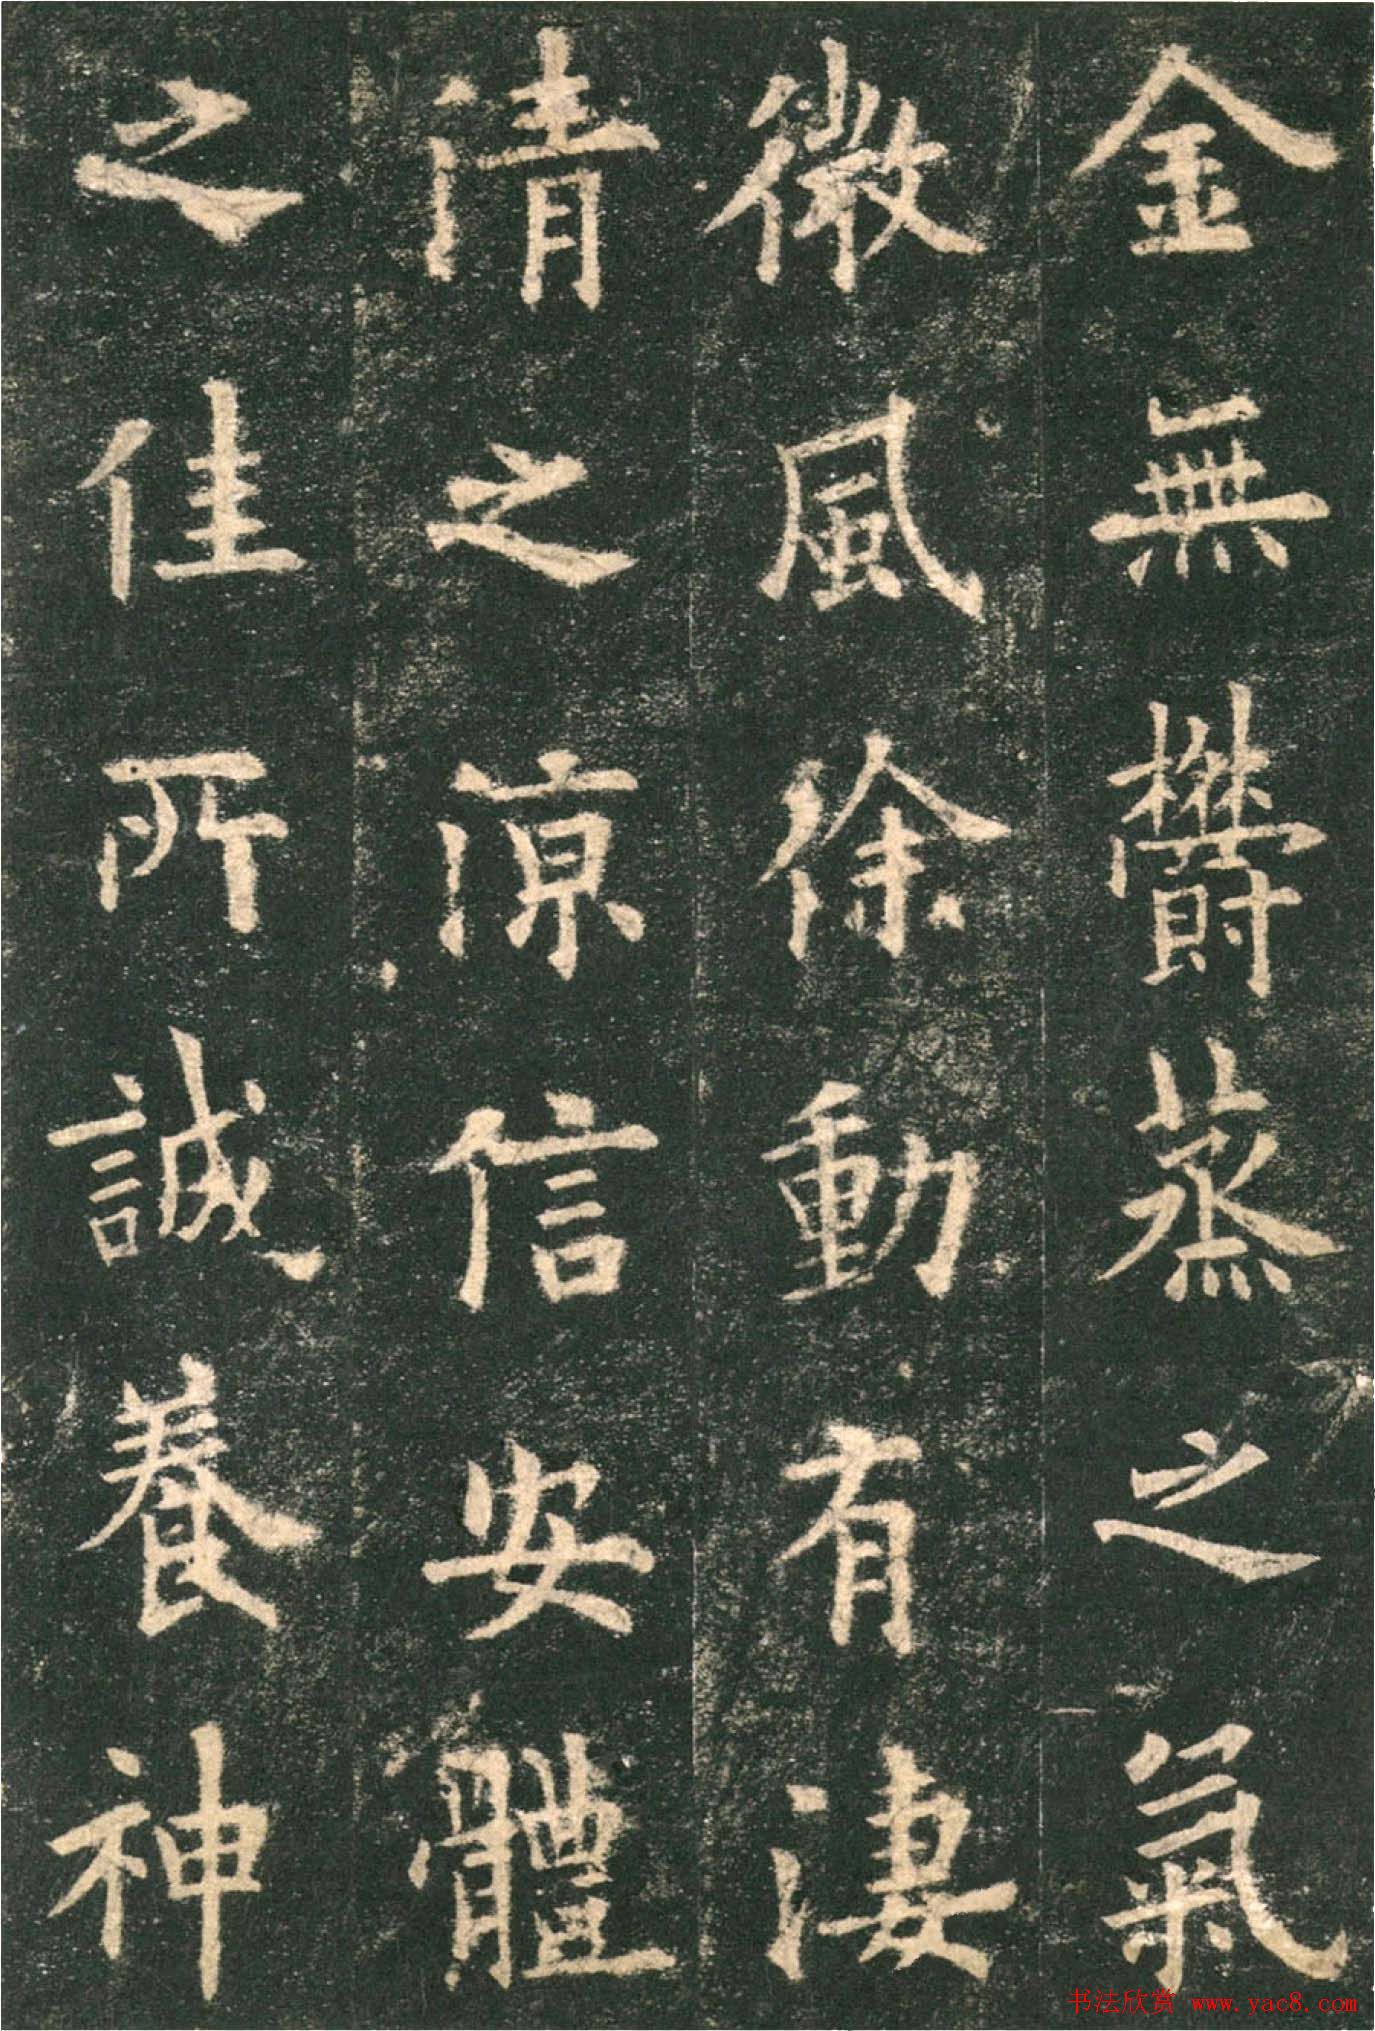 金無欝蒸之氣
微風徐動有淒
清之涼信安體
之佳所誠養神
书法欣赏 www.yac8.com